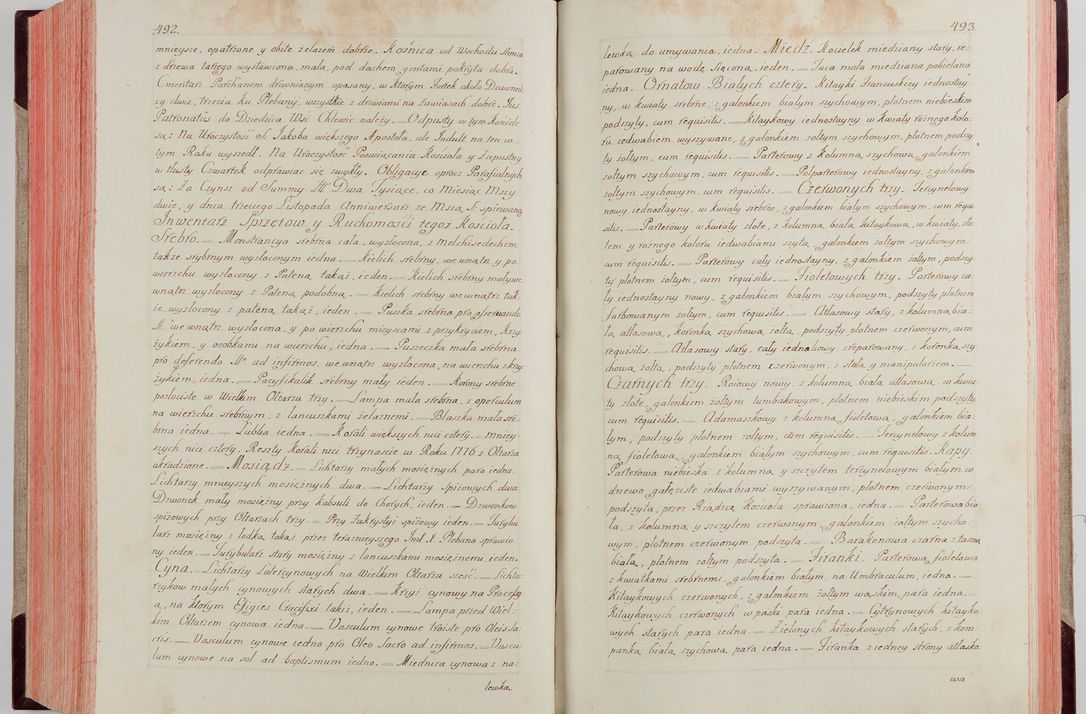 492.
mnieysze, opatrzone y obite żelazem dobrze. Kośnica od Wschodu słońca
z drzewa tartego wystawiona, mała, pod dachem gontami pokryta dobra.
Cmentarz Parchanem drewnianym opasany, w którym Furtek około Dzwonni-
cy dwie, trzecia ku Plebanij, wszystkie z drzwiami na zawiasach dobre. Jus
Patronatûs do Dziedzica Wsi Chlewic należy. — Odpusty w tym Kościele
są: Na Uroczystość S. Jakóba większego Apostoła, ale Indult na ten w
tym Roku wyszedł. Na Uroczystość Poświącania Kościoła y Zapustny
w tłusty Czwartek odprawiać się zwykły. Obligacye oprócz Parafialnych
są: Za Czynsz od Summy Dwa Tysiące, co Miesiąc Mszy
dwie, y dnia trzeciego Listopada Anniwersarz ze Mszą S. śpiewaną
Inwentarz Sprzętow y Ruchomości tegoż Kościoła.
Srebro. — Monstrancya srebrna cała, wyzłocona, z Melchisedechem
także srybrnym wyzłoconym iedna. — Kielich srebrny, wewnątrz y po
wierzchu wyzłocony z Pateną takąż, ieden. — Kielich srebrny malywe
wnątrz wyzłocony z Pateną podobną. — Kielich srebrny wewnątrz tak-
że wyzłocony z pateną takąż, ieden. — Puszka srebrna pro asservando
wewnątrz wyzłocona, y po wierzchu mieyscami z przykryciem, krzy-
żykiem, y osobkami na wierzchu, iedna. — Puszeczka mała srebrna
pro deferendo ad infirmos, wewnątrz wyzłocona, na wierzchu z krzy-
żykiem, iedna. — Pacyfikalik srebrny mały ieden. — Korony srebrne
pozłociste w Wielkim Ołtarzu trzy. — Lampa mała srebrna, z operculum
na wierzchu srebrnym, z łancuszkami żelaznemi. — Blaszka mała sre-
brna iedna. — Tublia iedna. — Korali większych nici cztery. — mniey-
szych nici cztery. Reszty Korali nici trzynascie w Roku 1776 z Ołtarza
ukradzione. — Mosiądz. — Lichtarzy małych mosiężnych para iedna.
Lichtarzy mnieyszych mosiężnych dwa. — Lichtarzy spiżowych dwa.
Dzwonek mały mosiężny przy kapsuli do Chorych, ieden. — Dzwonkow
spiżowych przy Ołtarzach trzy. — Przy Zakrystyi spiżowy ieden. — Turybu-
larz mosiężny z łodką, takąż przez teraznieyszego Plebana sprawio-
ny ieden. — Turybularz stary mosiężny z łancuszkami mosiężnemi, ieden.
Cyna. — Lichtarzy Talerzynowych na Wielkim Ołtarzu sześć. — Lichta-
rzykow małych cynowych starych dwa. — Krzyż cynowy na Processy-
ą, na ktorym Effigies Crucifixi takiż, ieden. — Lampa przed Wiel-
kim Ołtarzem cynowa iedna. — Vasculum cynowe troiste pro Oleis Sa-
cris. — Vasculum cynowe iedno pro Oleo Sacro ad infirmos. — Vascu-
lum cynowe na sol ad baptismum iedno. — Miednica cynowa z na-
lewką
493.
lewką do umywania, iedna. Miedź. Kociełek miedziany stary, re-
parowany na wodę Święconą, ieden. — Taca mała miedziana pobielana
iedna. Ornatow Białych cztery. Kitayki Francuskiey iednostay-
ny, w kwiaty srebrne, z galonkiem białym szychowym, płotnem niebieskim
podszyty, cum requisitis. — Kitaykowy iednostayny w kwiaty rożnego kolo-
ru iedwabiem wyszywane, z galonkiem żołtym szychowym, płotnem podszy-
ty żołtym, cum requisitis. — Parterowy z kolumną szychową, galonkiem
żołtym szychowym, cum requisitis. — Połparterowy iednostayny, z galonkiem
żołtym szychowym, cum requisitis. — Czerwonych trzy. Tercynelowy
nowy iednostayny, w kwiaty srebrne, z galonkiem białym szychowym, cum requi-
sitis. — Parterowy w kwiaty złote, z kolumną białą kitaykową, w kwiaty, zło-
tem y rożnego koloru iedwabiami szytą, galonkiem żołtym szychowym,
cum requisitis. — Parterowy cały iednostayny, z galonkiem żołtym, podszy-
ty płotnem żołtym, cum requisitis. — Fioletowych trzy. Parterowy ca-
ły iednostayny nowy, z galonkiem białym szychowym, podszyty płotnem
farbowanym żołtym, cum requisitis. — Atłasowy stary, z kolumną bia-
łą atłasową, koronką szychową żołtą, podszyty płotnem czerwonym, cum
requisitis. — Atłasowy stary, cały iednaliowy, zreparowany, z koronką szy-
chową, żołtą, podszyty płotnem czerwonym, z stułą y manipularzem. —
Czarnych trzy. Rojowy nowy, z kolumną białą atłasową, w kwia-
ty złote, galonkiem żołtym tumbakowym, płotnem niebieskim podszyty,
cum requisitis. — Adamaszkowy z kolumną fioletową, galonkiem bia-
łym, podszyty płotnem żołtym, cum requisitis. — Tercynelowy z kolum-
ną fioletową, galonkiem białym szychowym, cum requisitis. Kapy.
Parterowa niebieska z kolumną, y szczytem tercynelowym białym w
drzewo gałęziste iedwabiami wyszywanym, płotnem czerwonym
podszyta, przez Rządcę Kościoła sprawiona, iedna. — Parterowa bia-
ła, z kolumną y szczytem czerwonym, galonkiem żołtym szycho-
wym, płotnem czerwonym podszyta. — Barakonowa czarna z taśmą
białą, płotnem żołtym podszyta. — Firanki. Parterowa fioletowa
z kwiatkami srebrnemi, galonkiem białym, na Umbraculum, iedna. —
Kitaykowych czerwonych, z galonkiem żołtym wąskim, para iedna. —
Kitaykowych czerwonych w paski para iedna. — Cytrynowych kitayko-
wych starych, para iedna. — Zielonych kitaykowych starych, z kom-
panką białą szychową, para iedna. — Firanka z iedney strony atłasko-
wa